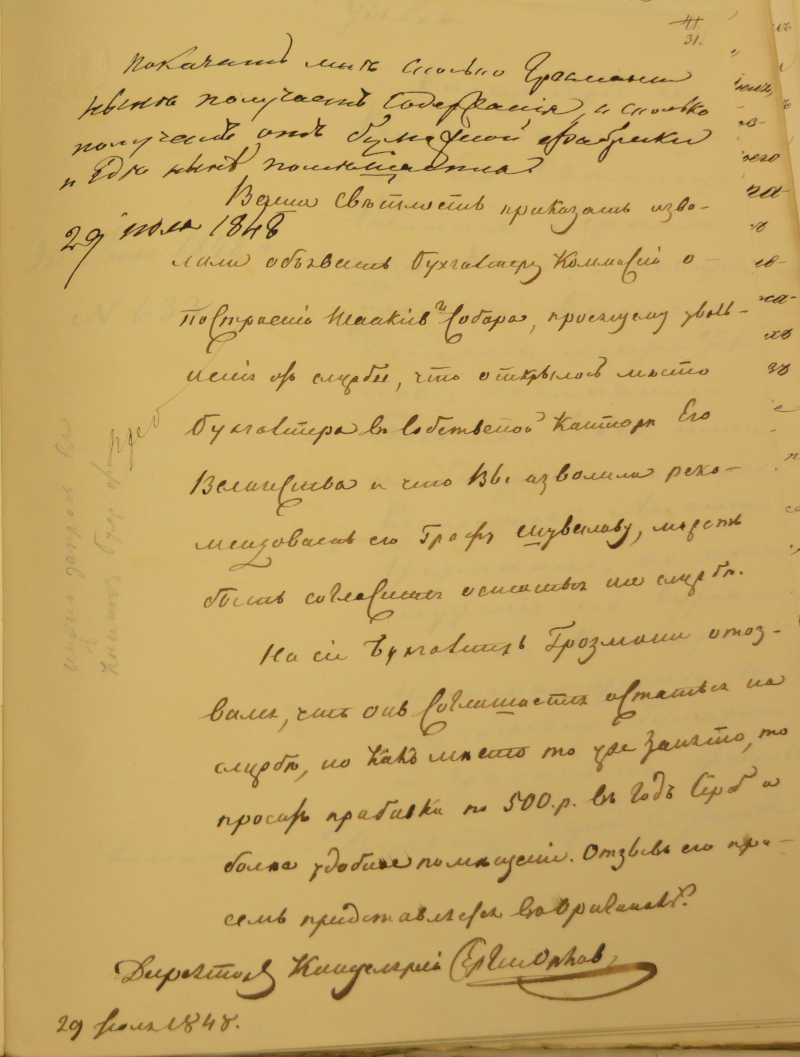 41
31.
Показать мне сколько Грозманн
ныне получаетъ содержанія, и сколько
получалъ отъ бумажной фабрики
и гдѣ нынѣ помещается?
29 июля 1848
Ваша Свѣтлость приказать изво-
лили объявить бухгалтеру Коммисіи о
построеніи Исаакіев. Собора, просящему уволь-
ненія отъ службы, что открылось место
бухгалтера въ собственной Канторѣ Его
Величества и что Вы изволили реко-
мендовать его Графу Шувалову, можетъ
быть согласится остаться на службѣ.
На сіе бухгалтеръ Грозманн отоз-
вался, что онъ соглашается остаться на
службѣ, но какъ мѣсто то уже занято, то
проситъ прибавки по 500.р. въ годъ сереб. и
болѣе удобное помѣщеніе. Отзывъ его при
семъ представляется въ оригиналѣ.
Директоръ Канцеляріи
29 Июля 1848.